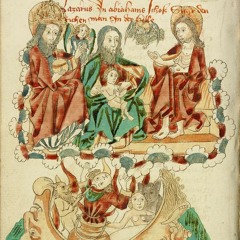 Lazarus In abrahams schoß Vnd den
Richen man In der helle